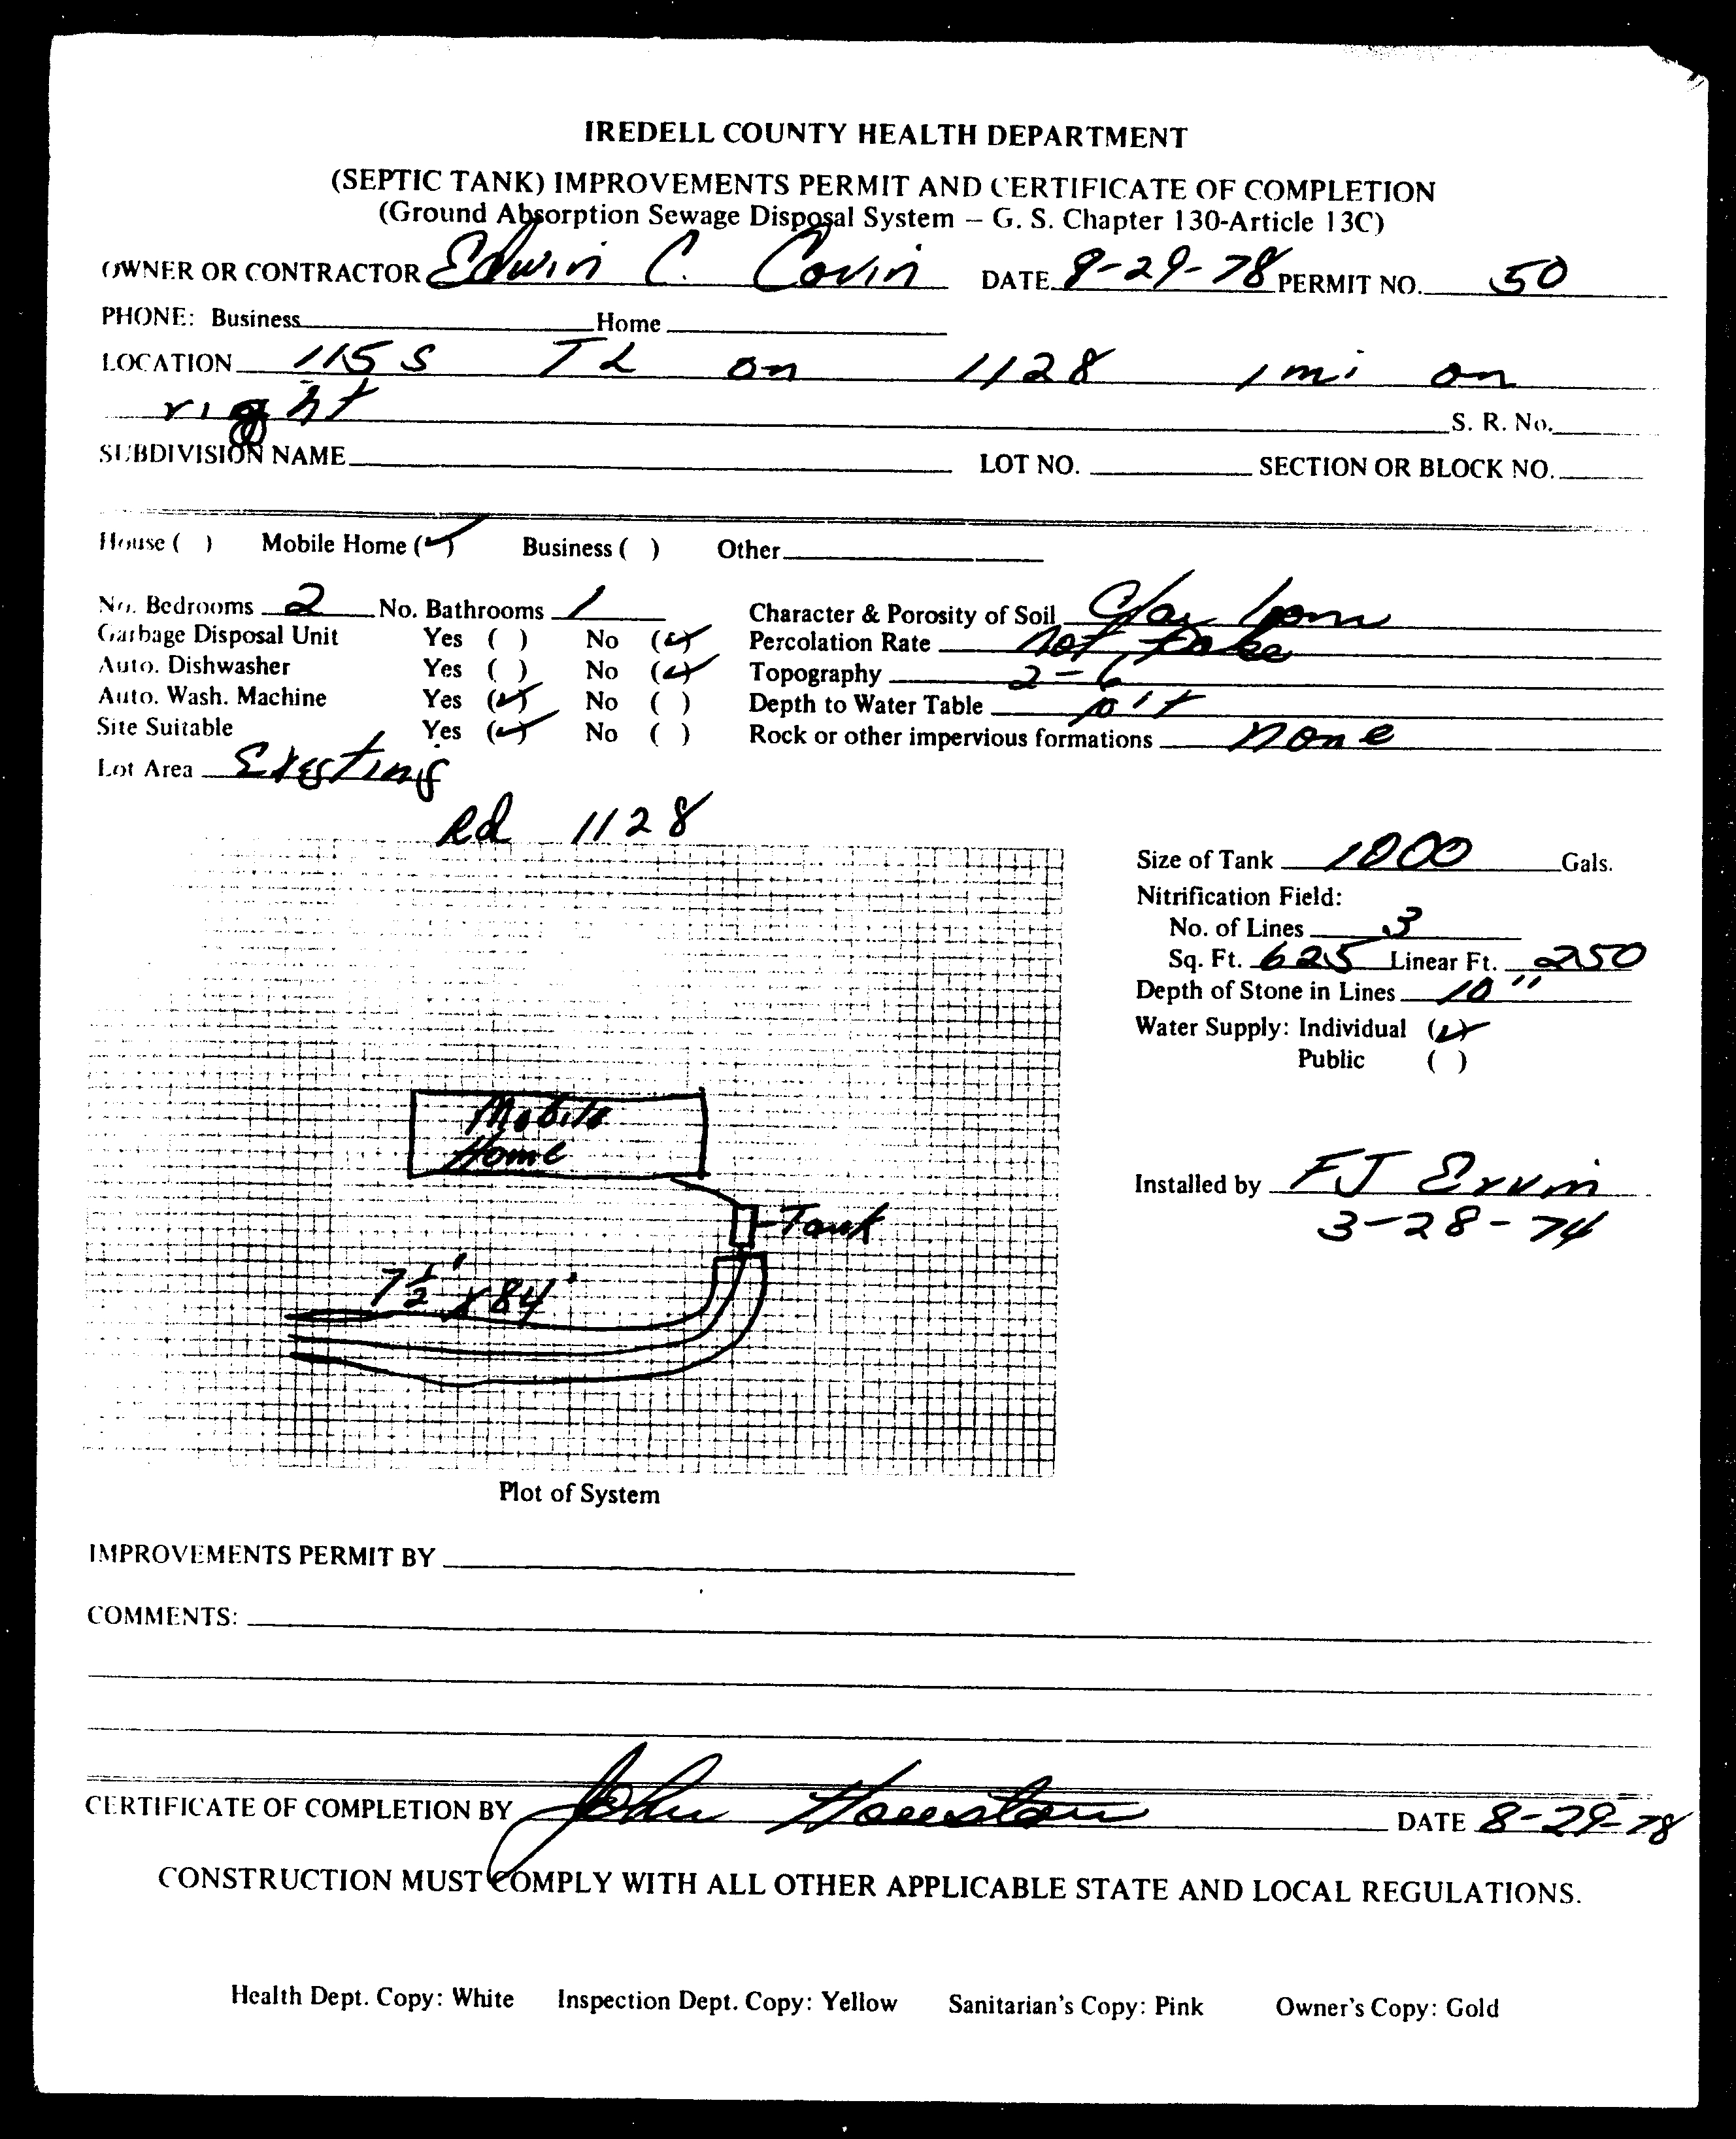 IREDELL COUNTY HEALTH DEPARTMENT
(SEPTIC TANK) IMPROVEMENTS PERMIT AND CERTIFICATE OF COMPLETION
(Ground Absorption Sewage Disposal System – G. S. Chapter 130-Article 13C)
OWNER OR CONTRACTOR Edwin C. Covin DATE 8-29-78 PERMIT NO. 50
PHONE: Business Home
LOCATION 115 S T L on 1128 1 mi on
right S. R. No.
SUBDIVISION NAME LOT NO. SECTION OR BLOCK NO.
House ( ) Mobile Home (✓) Business ( ) Other
No. Bedrooms 2 No. Bathrooms 1 Character & Porosity of Soil Clay loam
Garbage Disposal Unit Yes ( ) No (✓) Percolation Rate Not Take
Auto. Dishwasher Yes ( ) No (✓) Topography 2-6
Auto. Wash. Machine Yes (✓) No ( ) Depth to Water Table 10'+
Site Suitable Yes (✓) No ( ) Rock or other impervious formations none
Lot Area Existing
Rd 1128
Size of Tank 1000 Gals.
Nitrification Field:
No. of Lines 3
Sq. Ft. 625 Linear Ft. 250
Depth of Stone in Lines 10"
Water Supply: Individual (✓)
Public ( )
Mobile
Home
Installed by FJ Ervin
3-28-74
Tank
7½' x 84'
Plot of System
IMPROVEMENTS PERMIT BY
COMMENTS:
CERTIFICATE OF COMPLETION BY John Houston DATE 8-29-78
CONSTRUCTION MUST COMPLY WITH ALL OTHER APPLICABLE STATE AND LOCAL REGULATIONS.
Health Dept. Copy: White Inspection Dept. Copy: Yellow Sanitarian's Copy: Pink Owner's Copy: Gold